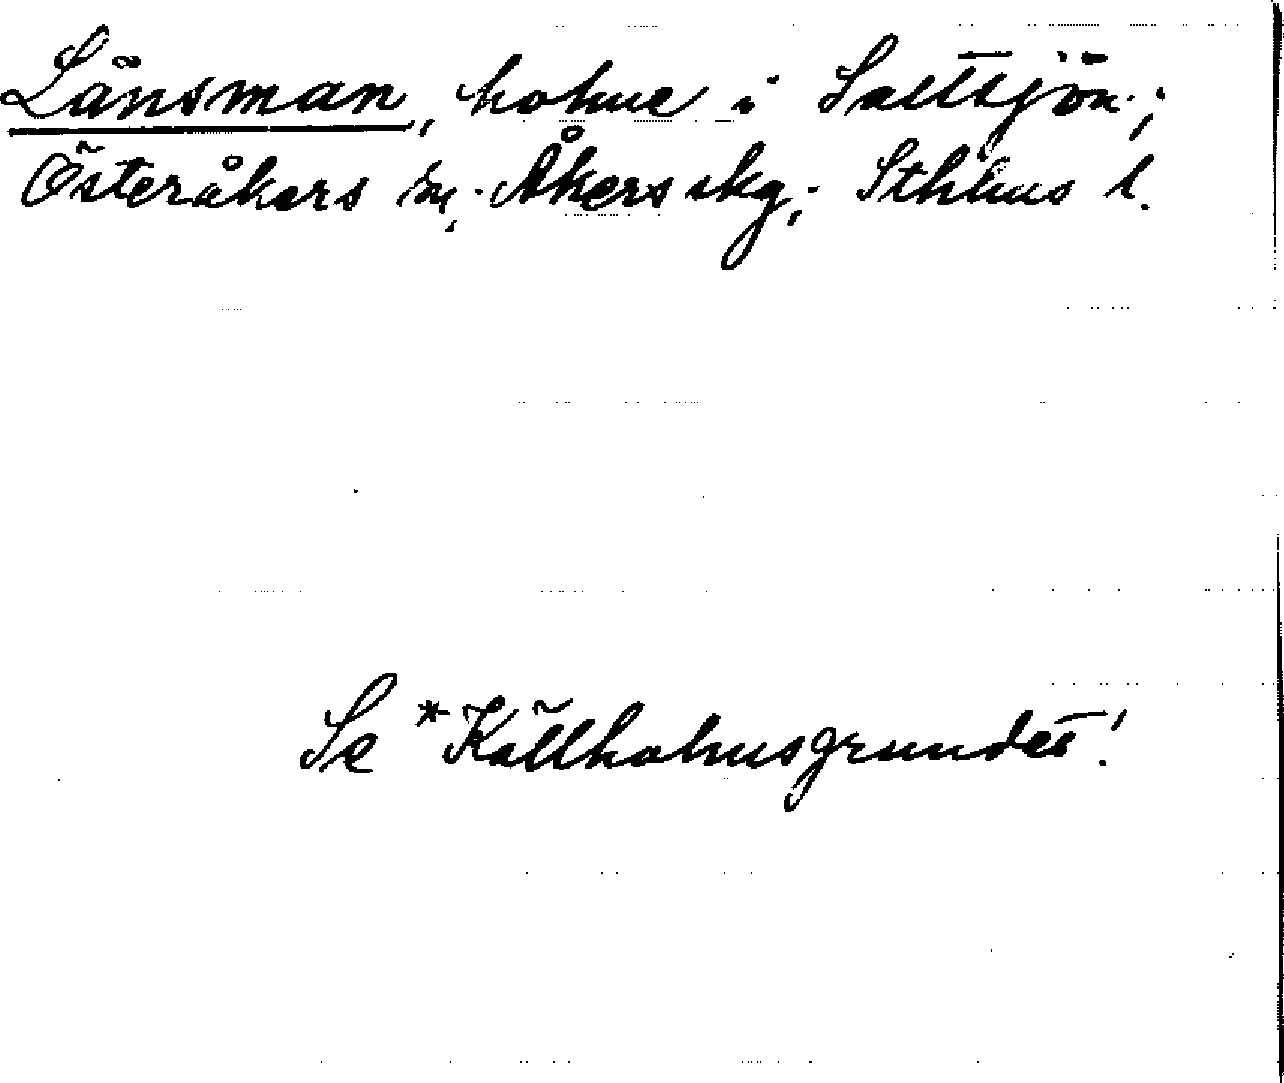 Länsman, holme i Saltsjön;
Österåkers sn, Åkers skg, Sthlms l.
Se *Källholmsgrundet!